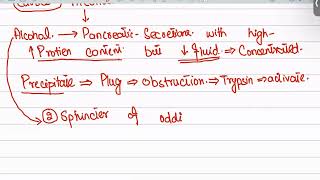 Alcohol → Pancreatic Secretions with high-
↑ Protien content but ↓ fluid ⇒ Concentrated.
Precipitate ⇒ Plug ⇒ obstruction ⇒ Trypsin ⇒ activate.
② Sphincter of oddi